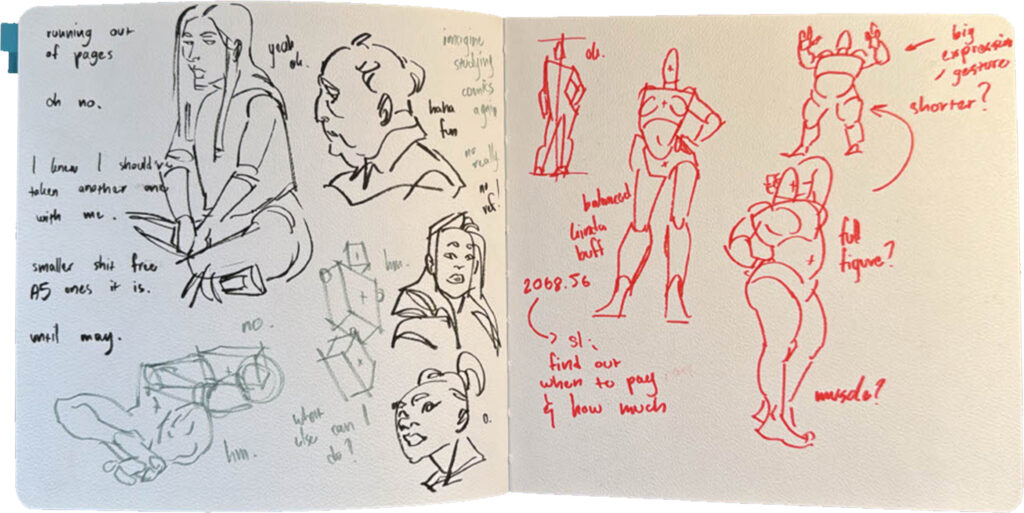 running out
of pages
oh no.
I knew I should've
taken another one
with me.
smaller shit free
A5 ones it is.
until may.
yeah
ok.
haha
fun
imagine
studying
comics
again
no
really
no
ref!
hm.
no.
hm.
what
else can I
do?
o.
ok.
balanced
kinda
buff
2068.56
find out
when to pay
& how much
big
expression
/ gesture
shorter?
full
figure?
muscle?